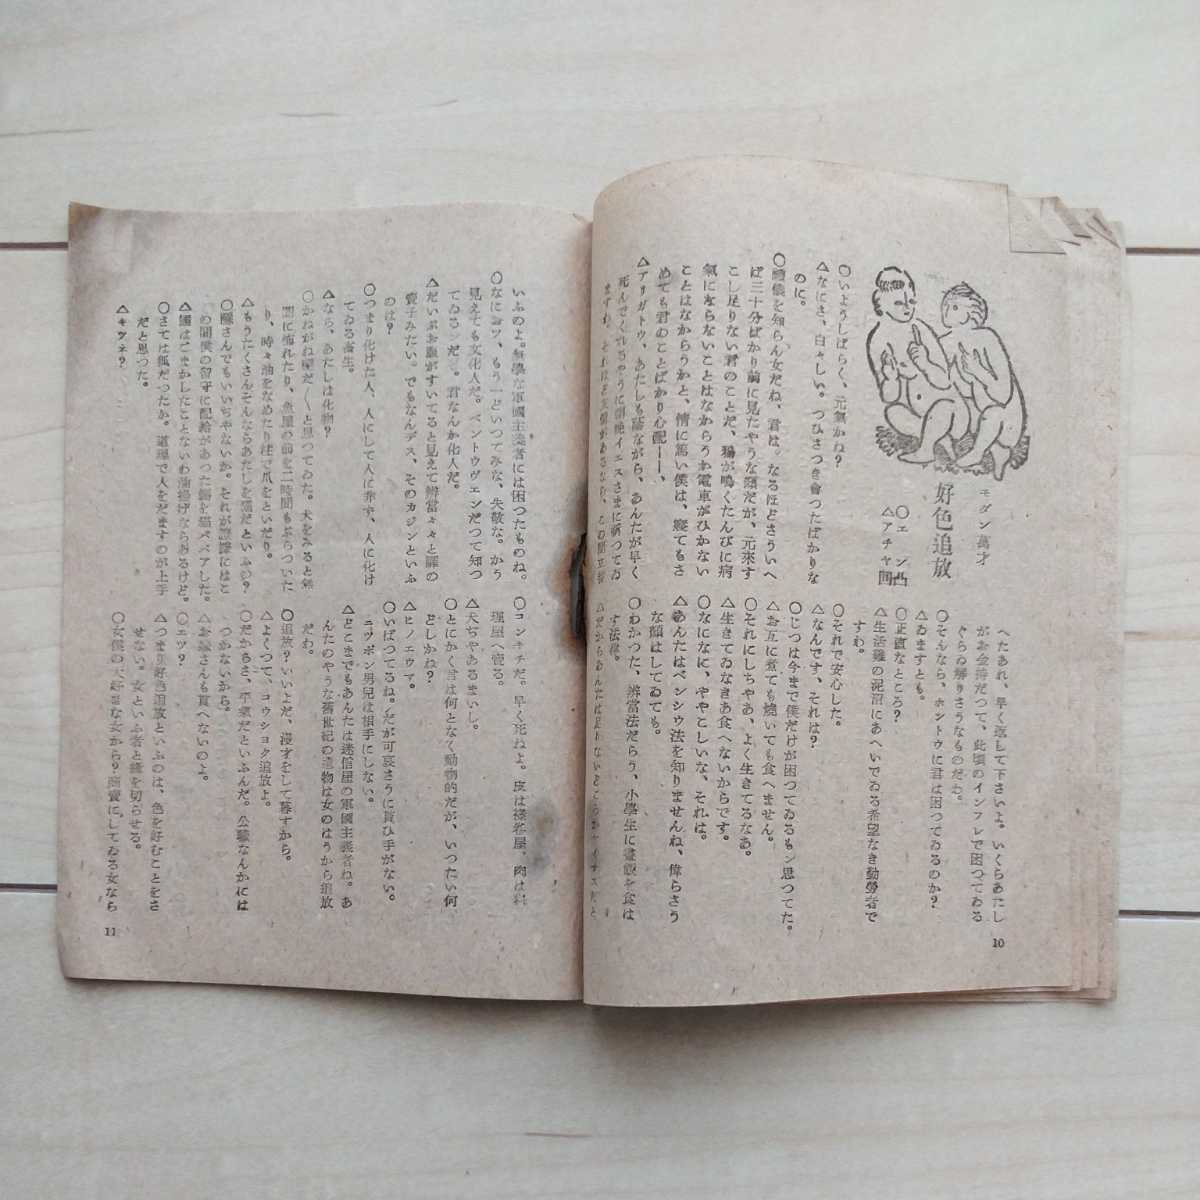 モダン萬才
好色追放
〇エン凸
△アチャ凹
〇いようしばらく、元氣かね?
△なにさ、白々しい。つひさつき會つたばかりな
のに。
〇禮儀を知らん女だね、君は。なるほどさういへ
ば三十分ばかり前に見たやうな顔だが、元來す
こし足りない君のことだ、鴉が鳴くたんびに病
氣にならないことはなからうか電車がひかない
ことはなからうかと、情に篤い僕は、寢てもさ
めても君のことばかり心配――、
△アリガトウ、あたしも蔭ながら、あんたが早く
死んでくれるやうに朝晩イエスさまに祈つてゐ
ますわ。それほど友情があるなら、この間立替
へたあれ、早く返して下さいよ。いくらあたし
がお金持だつて、此頃のインフレで困つてゐる
ぐらゐ解りさうなものだわ。
〇そんなら、ホントウに君は困つてゐるのか?
△ゐますとも。
〇正直なところ?
△生活難の泥沼にあへいでゐる希望なき勤勞者で
すわ。
〇それで安心した。
△なんです、それは?
〇じつは今まで僕だけが困つてゐるもン思つてた。
△お互に煮ても燒いても食へません。
〇それにしちやあ、よく生きてるなあ。
△生きてゐなきあ食へないからです。
〇なになに、ややこしいな、それは。
△あんたはベンシウ法を知りませんね、偉らさう
な顔はしてゐても。
〇わかつた、辨當法だらう、小學生に晝飯を食は
す法律。
△だからあんたは足りないどころか、イナズだと
いふのよ。無學な軍國主義者には困つたものね。
〇なにおツ、もう一どいつてみな、失敬な。かう
見えても文化人だ。ベントウヴェンだつて知つ
てゐるンだ。君なんか化人だ。
△だいぶお腹がすいてると見えて辨當々々と罐の
費子みたい。でもなんデス、そのカジンといふ
のは?
〇つまり化けた人、人にして人に非ず、人に化け
てゐる畜生。
△なら、あたしは化物?
〇かねがね怪だ〱と思つてゐた。犬をみると無
闇に怖れたり、魚屋の前を二時間もぶらついた
り、時々油をなめたり柱で爪をといだり。
△もうたくさんそんならあたしを猫だといふの?
〇猫さんでもいいぢやないか。それが證據にはこ
の間僕の留守に配給があつた鯣を猫ババアした。
△鯣はごまかしたことないわ油揚げならあるけど。
〇さては狐だつたか。道理で人をだますのが上手
だと思つた。
△キツネ?
〇コンキチだ。早く死ねよ。皮は襟卷屋、肉は料
理屋へ賣る。
△犬ぢやあるまいし。
〇とにかく君は何となく動物的だが、いつたい何
どしかね?
△ヒノエウマ。
〇いばつてるね。だが可哀さうに貰ひ手がない。
ニツポン男兒は相手にしない。
△どこまでもあんたは迷信屋の軍國主義者ね。あ
んたのやうな舊世紀の遺物は女のはうから追放
だわ。
〇追放?いいよだ、漫才をして暮すから。
△よくつて、コウショク追放よ。
〇だからさ、平氣だといふんだ。公職なんかには
つかないから。
△お嫁さんも貰へないのよ。
〇エツ?
△つまり好色追放といふのは、色を好むことをさ
せない。女といふ者と縁を切らせる。
〇女、僕の大好きな女から?商賣にしてゐる女なら
10
11